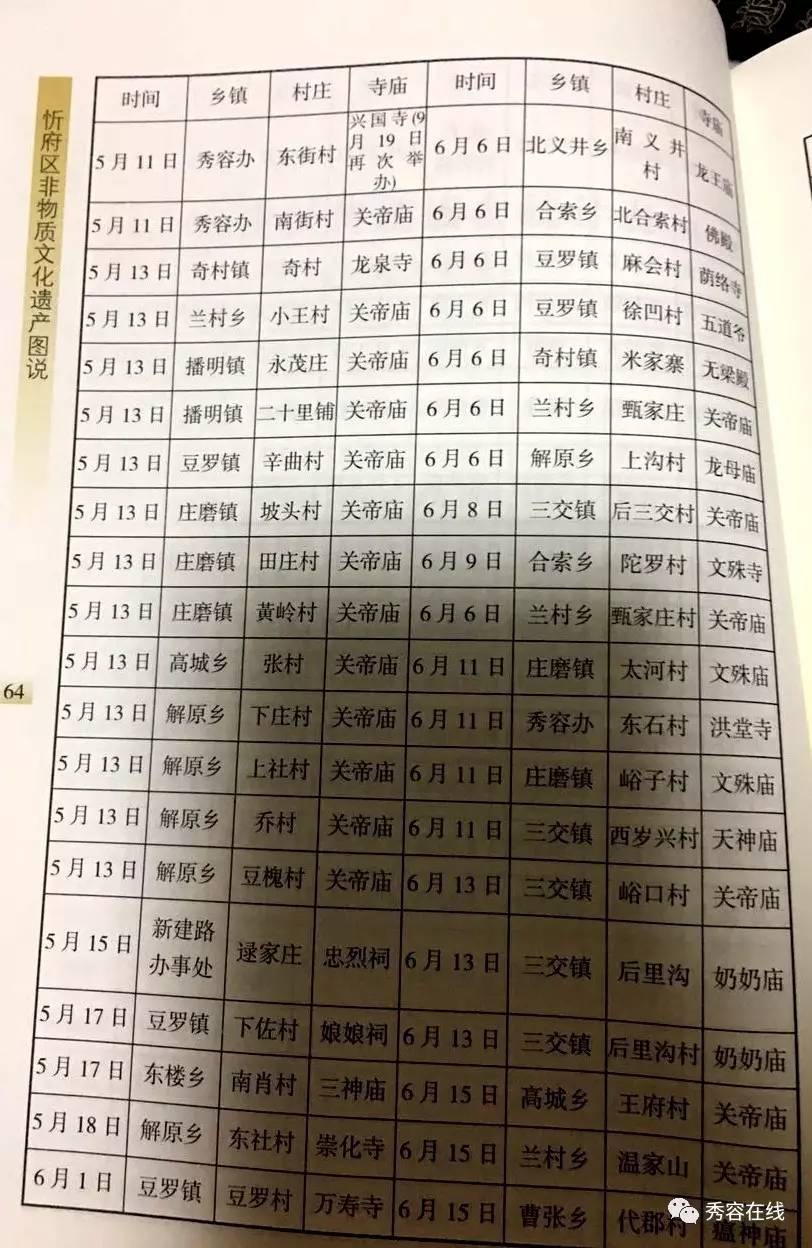 忻府区非物质文化遗产图说
64
时间 乡镇 村庄 寺庙 时间 乡镇 村庄 寺庙
5月11日 秀容办 东街村 兴国寺(9月19日再次举办) 6月6日 北义井乡 南义井村 龙王庙
5月11日 秀容办 南街村 关帝庙 6月6日 合索乡 北合索村 佛殿
5月13日 奇村镇 奇村 龙泉寺 6月6日 豆罗镇 麻会村 荫络寺
5月13日 兰村乡 小王村 关帝庙 6月6日 豆罗镇 徐凹村 五道爷
5月13日 播明镇 永茂庄 关帝庙 6月6日 奇村镇 米家寨 无梁殿
5月13日 播明镇 二十里铺 关帝庙 6月6日 兰村乡 甄家庄 关帝庙
5月13日 豆罗镇 辛曲村 关帝庙 6月6日 解原乡 上沟村 龙母庙
5月13日 庄磨镇 坡头村 关帝庙 6月8日 三交镇 后三交村 关帝庙
5月13日 庄磨镇 田庄村 关帝庙 6月9日 合索乡 陀罗村 文殊寺
5月13日 庄磨镇 黄岭村 关帝庙 6月6日 兰村乡 甄家庄村 关帝庙
5月13日 高城乡 张村 关帝庙 6月11日 庄磨镇 太河村 文殊庙
5月13日 解原乡 下庄村 关帝庙 6月11日 秀容办 东石村 洪堂寺
5月13日 解原乡 上社村 关帝庙 6月11日 庄磨镇 峪子村 文殊庙
5月13日 解原乡 乔村 关帝庙 6月11日 三交镇 西岁兴村 天神庙
5月13日 解原乡 豆槐村 关帝庙 6月13日 三交镇 峪口村 关帝庙
5月15日 新建路办事处 逯家庄 忠烈祠 6月13日 三交镇 后里沟 奶奶庙
5月17日 豆罗镇 下佐村 娘娘祠 6月13日 三交镇 后里沟村 奶奶庙
5月17日 东楼乡 南肖村 三神庙 6月15日 高城乡 王府村 关帝庙
5月18日 解原乡 东社村 崇化寺 6月15日 兰村乡 温家山 关帝庙
6月1日 豆罗镇 豆罗村 万寿寺 6月15日 曹张乡 代郡村 瘟神庙
秀容在线